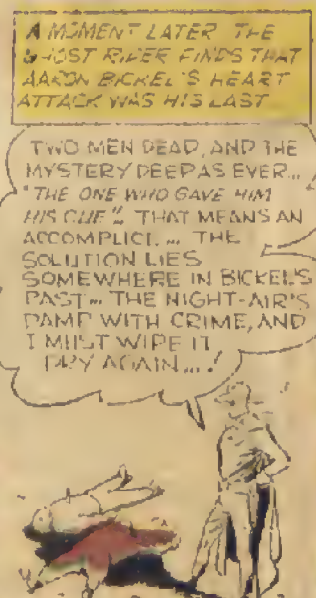 A MOMENT LATER THE
GHOST RIDER FINDS THAT
AARON BICKEL'S HEART
ATTACK WAS HIS LAST
TWO MEN DEAD, AND THE
MYSTERY DEEP AS EVER...
"THE ONE WHO GAVE HIM
HIS CUE". THAT MEANS AN
ACCOMPLICE... THE
SOLUTION LIES
SOMEWHERE IN BICKEL'S
PAST... THE NIGHT-AIR'S
DAMP WITH CRIME, AND
I MUST WIPE IT
DRY AGAIN...!